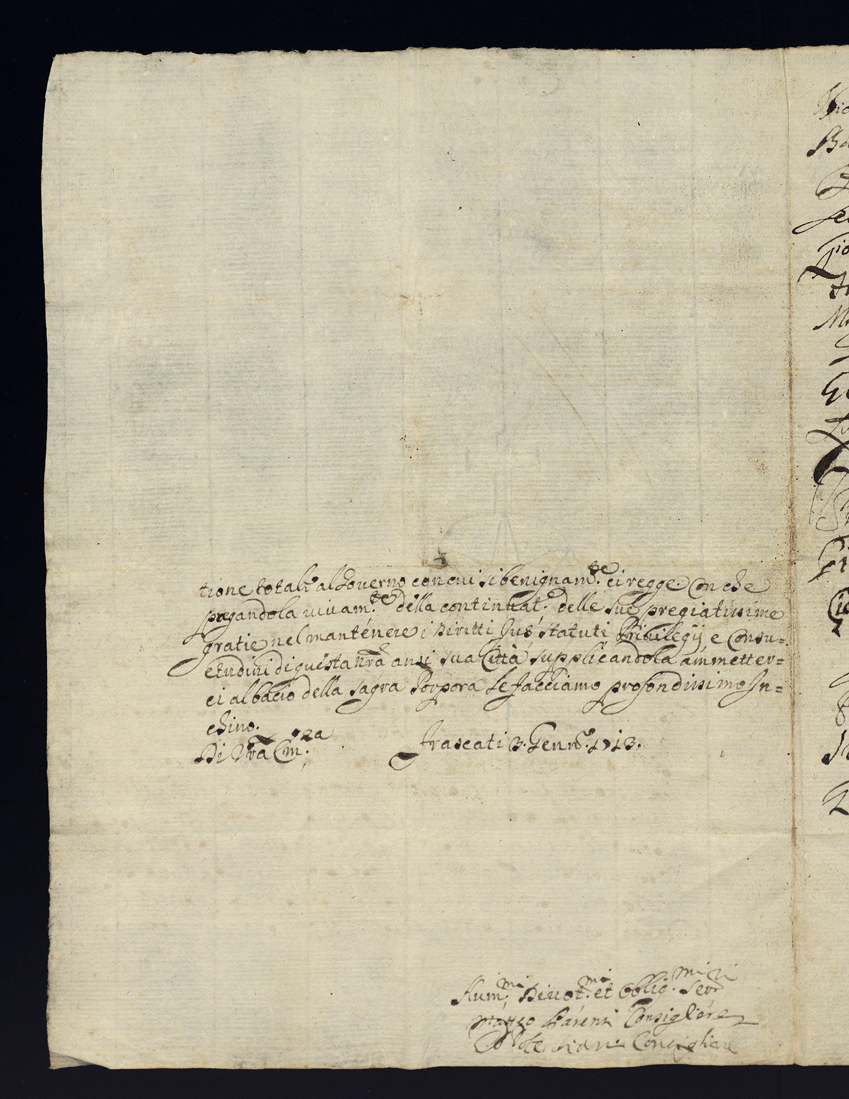 tione totale al Governo con cui si benignam.te ci regge. Con che
pregandola vivam.te della continuat.e delle sue pregiatissime
gratie nel mantenere i Diritti Jus' statuti Privilegij e Consu=
etudini di questa n̄ra anzi sua Città supplicandola ammetter=
ci al bacio della Sagra Porpora Le facciamo profondissimo In=
chino.
Di V̄ra Em.za Frascati 3. Genn.o 1713.
Hum.mi Divot.mi et Oblig.mi Ser.ri
Parenti Consigliere
Consigliere